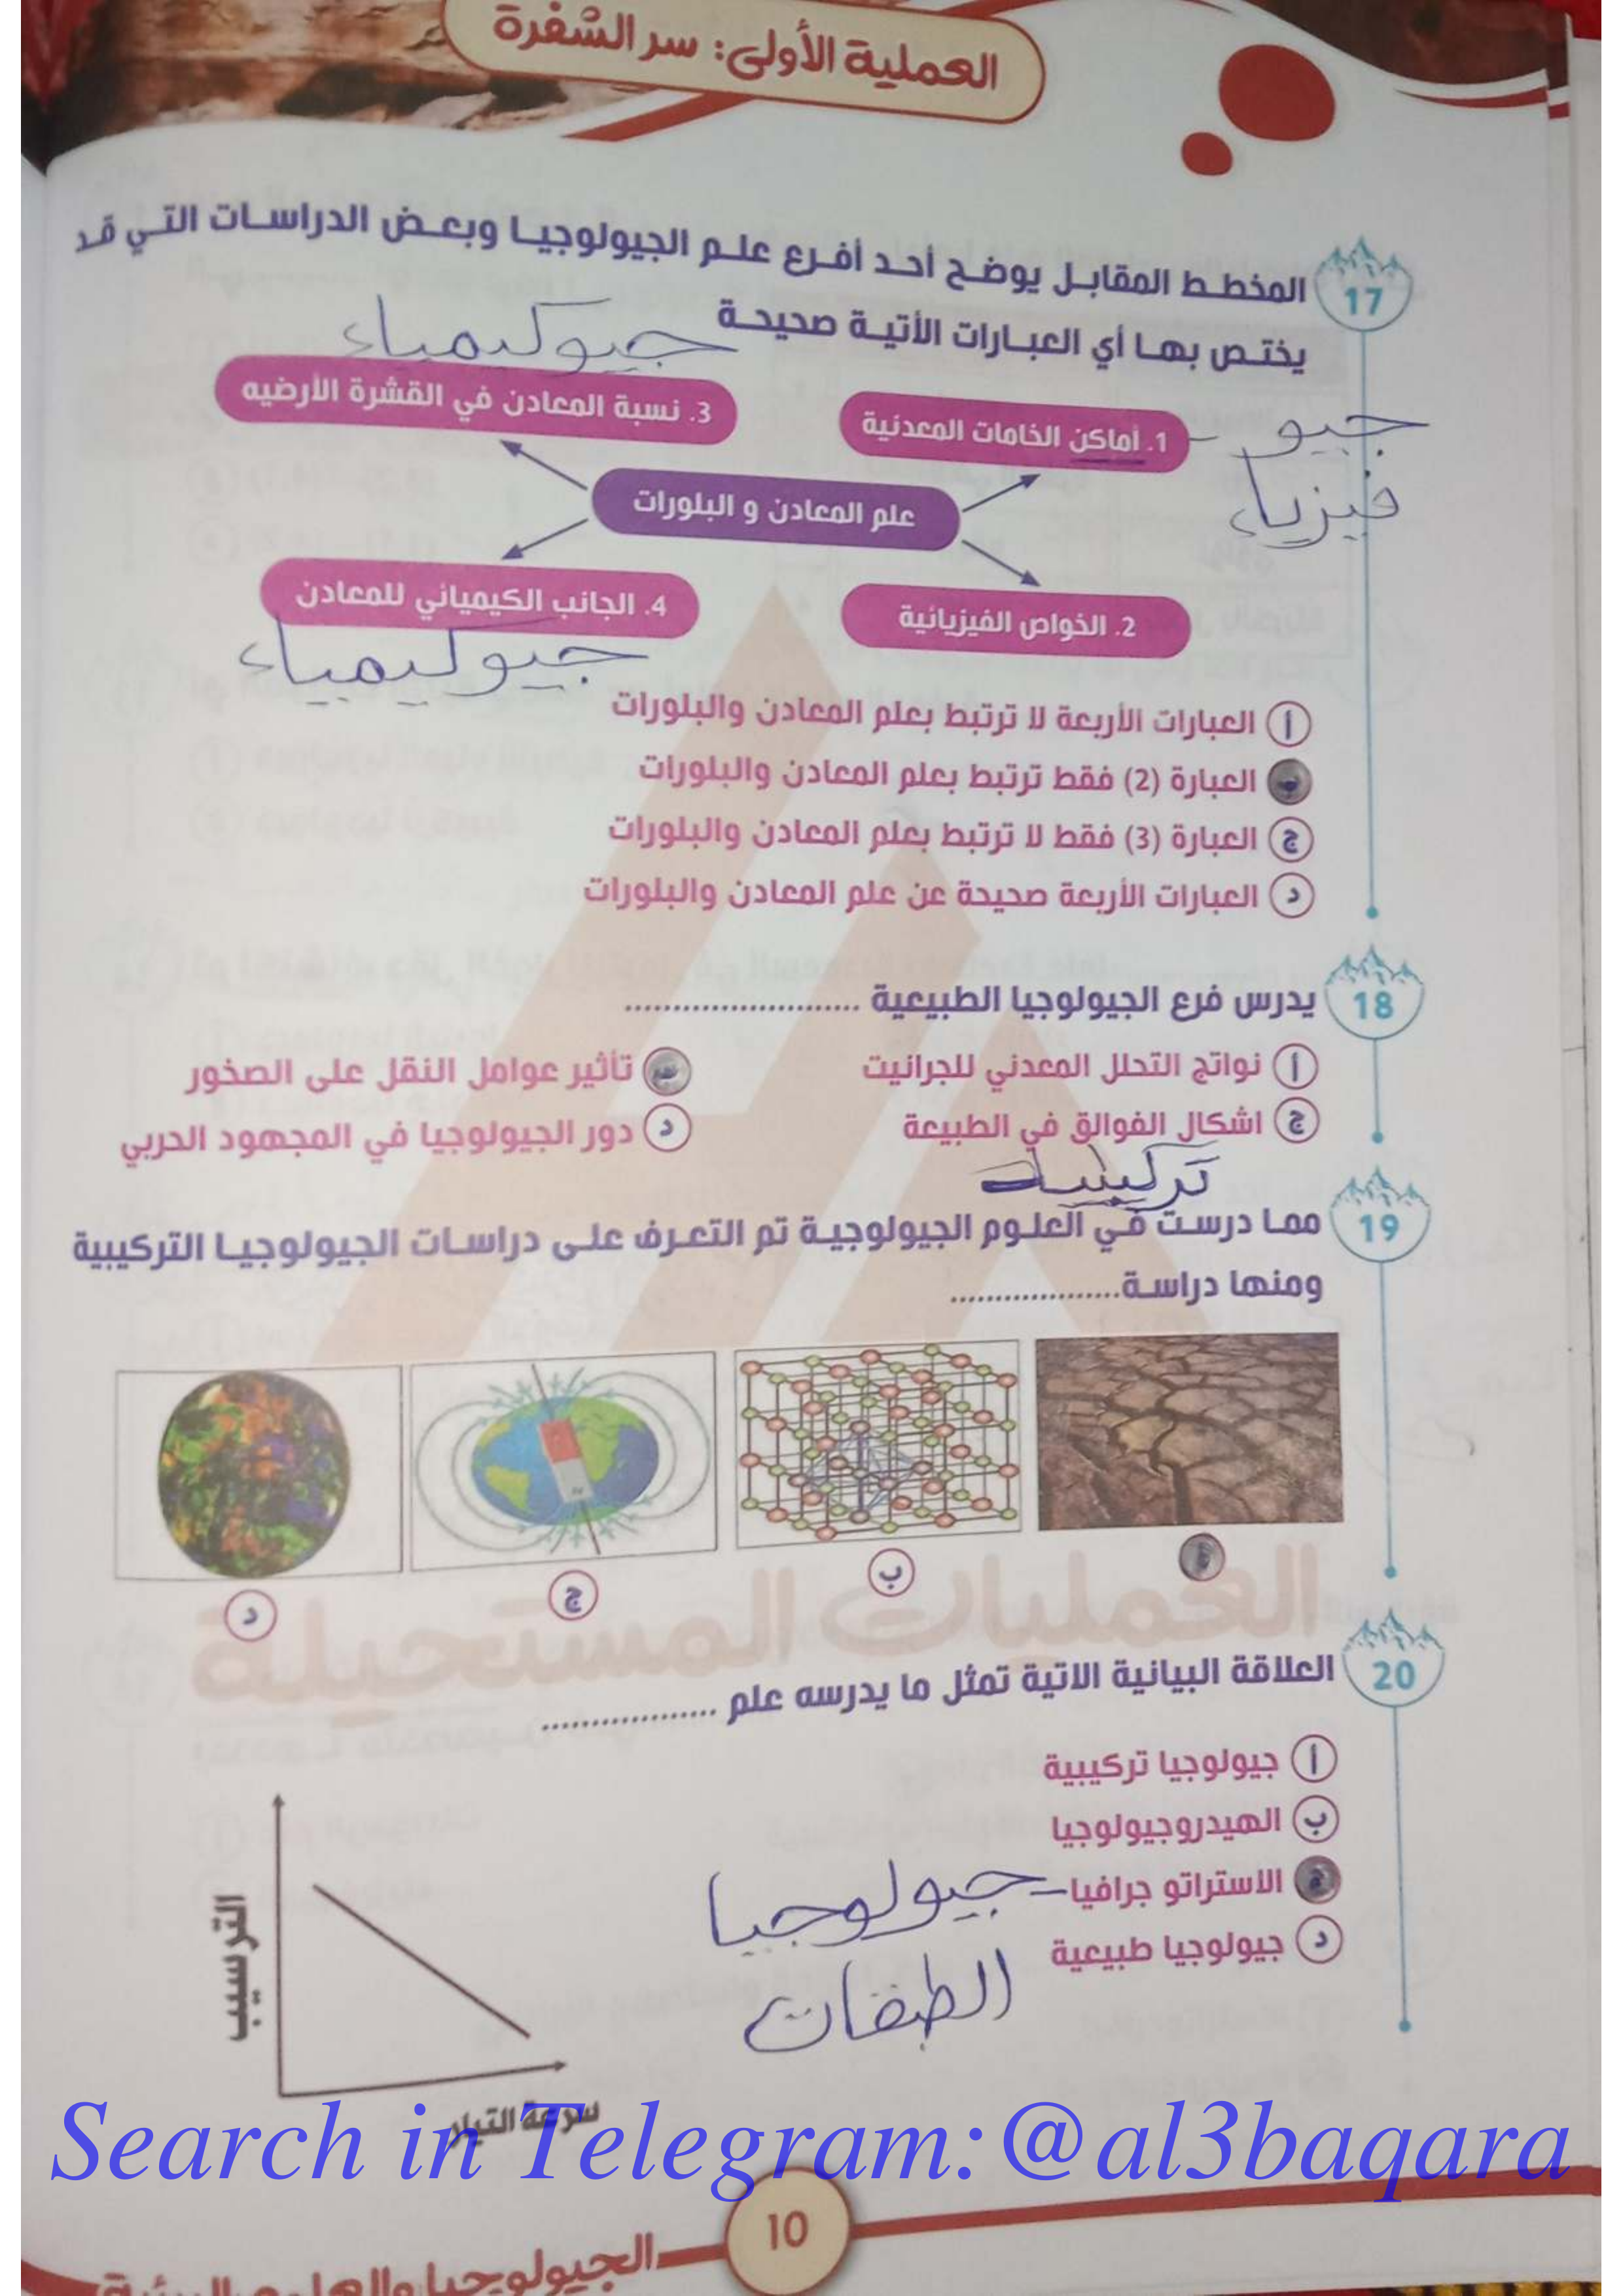 العملية الأولى: سر الشفرة
17 المخطط المقابل يوضح أحد أفرع علم الجيولوجيا وبعض الدراسات التي قد
يختص بها أي العبارات الأتية صحيحة
جيوكيمياء
3. نسبة المعادن في القشرة الأرضيه
1. أماكن الخامات المعدنية
جيو
فيزياء
علم المعادن و البلورات
4. الجانب الكيميائي للمعادن
2. الخواص الفيزيائية
جيوكيمياء
أ العبارات الأربعة لا ترتبط بعلم المعادن والبلورات
ب العبارة (2) فقط ترتبط بعلم المعادن والبلورات
ج العبارة (3) فقط لا ترتبط بعلم المعادن والبلورات
د العبارات الأربعة صحيحة عن علم المعادن والبلورات
18 يدرس فرع الجيولوجيا الطبيعية ........................
أ نواتج التحلل المعدني للجرانيت
تأثير عوامل النقل على الصخور
ج اشكال الفوالق في الطبيعة
د دور الجيولوجيا في المجهود الحربي
19 مما درست في العلوم الجيولوجية تم التعرف على دراسات الجيولوجيا التركيبية
ومنها دراسة..................
أ
ب
ج
د
20 العلاقة البيانية الاتية تمثل ما يدرسه علم ..................
أ جيولوجيا تركيبية
ب الهيدروجيولوجيا
ج الاستراتو جرافيا
جيولوجيا
د جيولوجيا طبيعية
الترسيب
سرعة التيار
Search in Telegram:@al3baqara
10
الجيولوجيا والعلوم البيئية